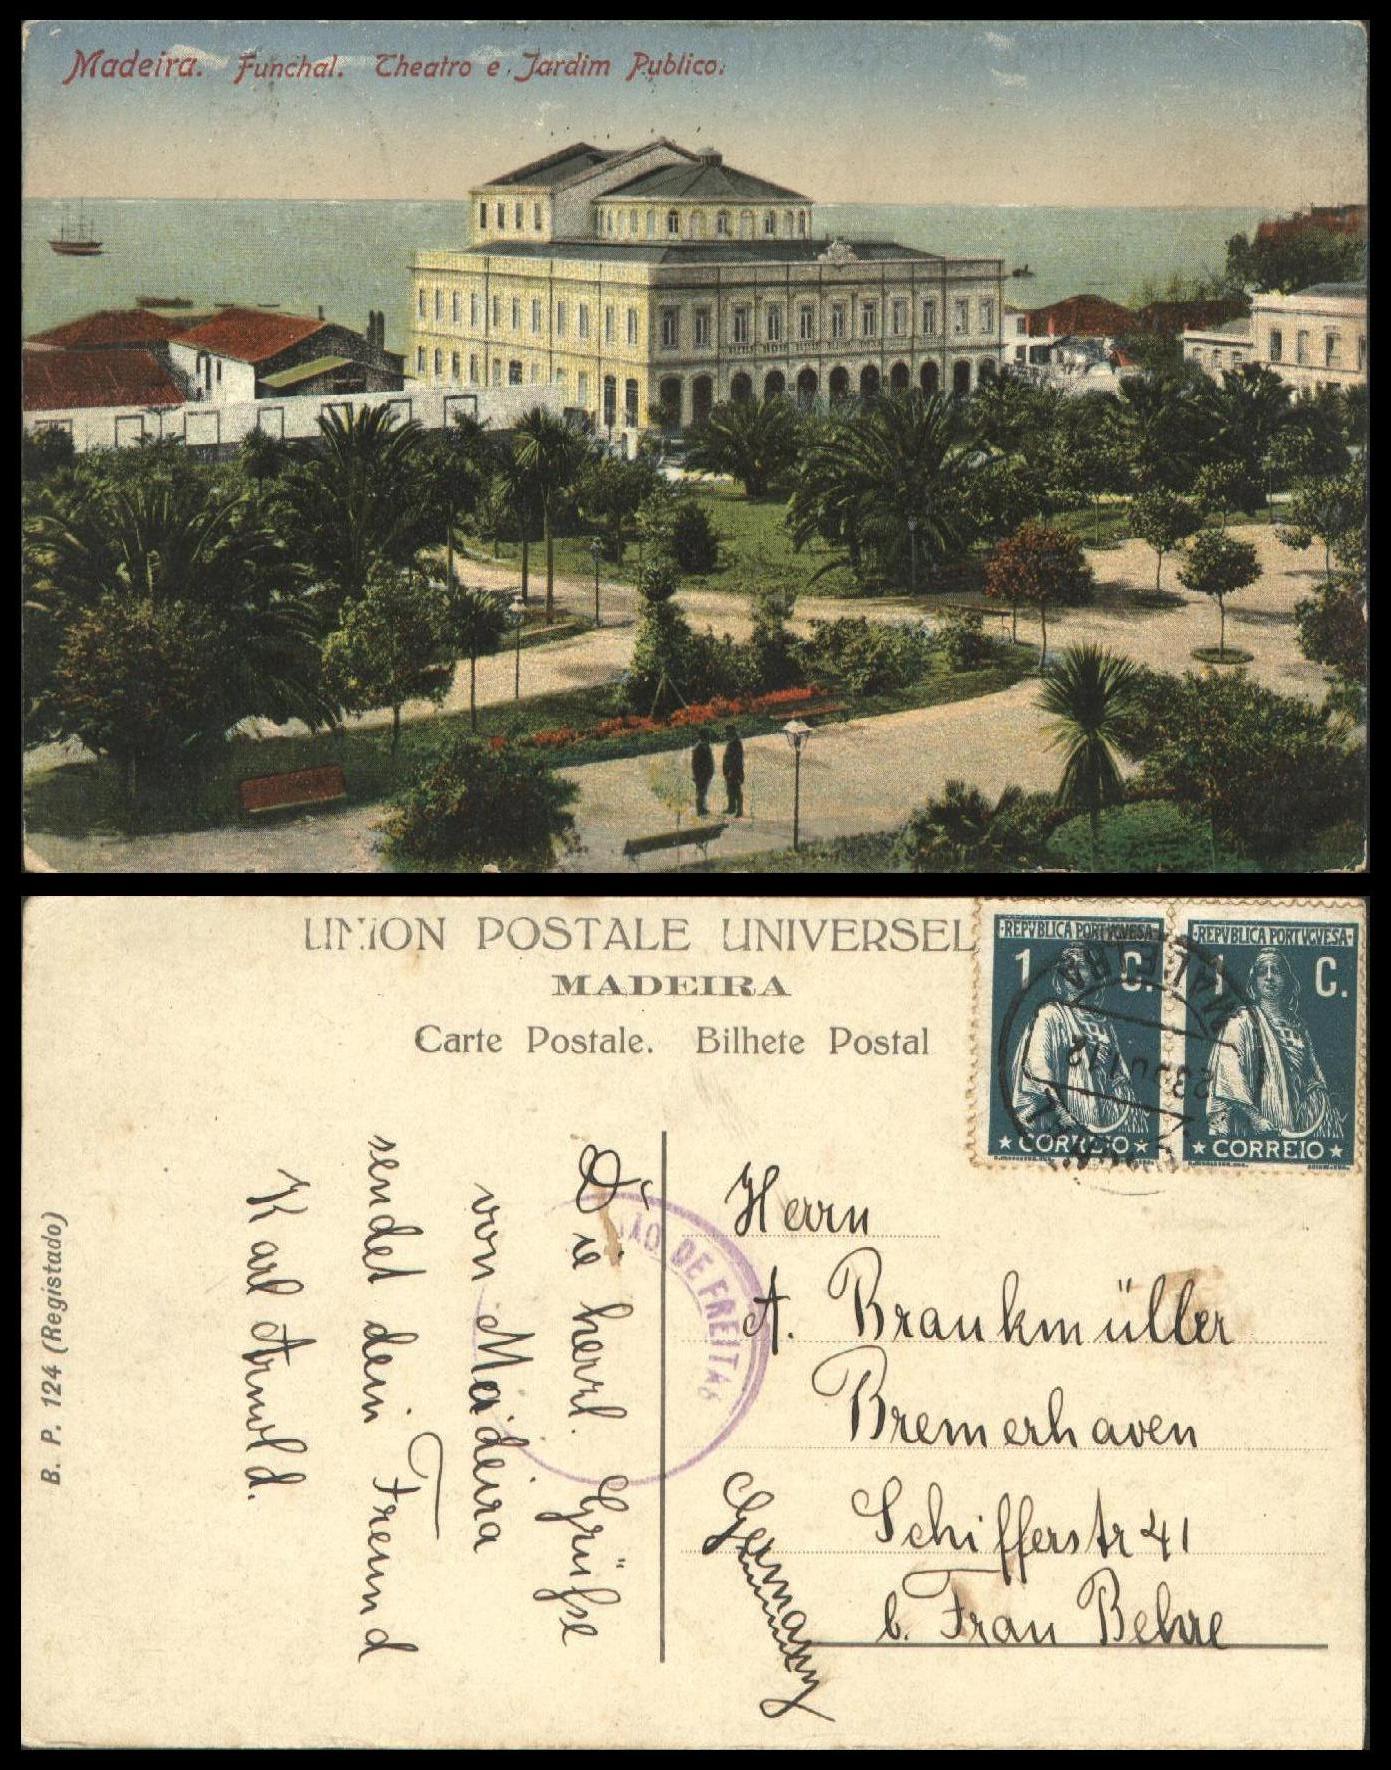 Madeira. Funchal. Theatro e Jardim Publico.
UNION POSTALE UNIVERSEL
MADEIRA
Carte Postale. Bilhete Postal
REPVBLICA PORTVGVESA
1 C.
CORREIO
REPVBLICA PORTVGVESA
1 C.
CORREIO
MADEIRA
23 JUL 12
DE FREITAS
B. P. 124 (Registado)
Die herzl. Grüße
von Madeira
sendet dein Freund
Karl Arnold.
Herrn
A. Braukmüller
Bremerhaven
Schifferstr 41
b. Frau Behre
Germany